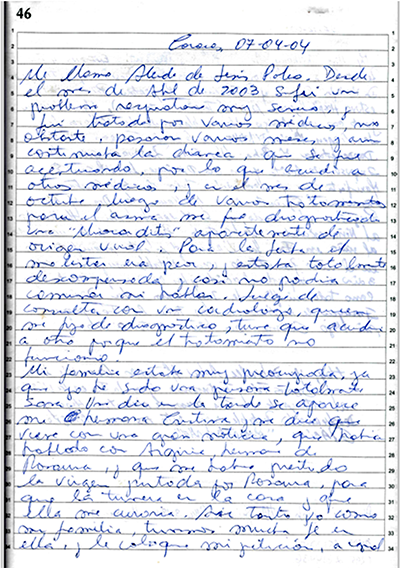 46
Caracas 07-04-04
Me llamo de Jesús Poleo. Desde
el mes de Abril de 2003 Sufrí un
problema respiratorio muy serio, y
fui tratada por varios médicos, no
obstante, pasaron varios meses, y aun
continuaba la disnea, que se fue
acentuando, por lo que acudí a
otros médicos, y en el mes de
octubre luego de varios tratamientos
para el asma me fue diagnosticada
una "Miocarditis" aparentemente de
origen viral. Para la fecha el
malestar era peor, y estaba totalmente
descompensada, casi no podía
caminar ni hablar. Luego de
consulta con un cardiólogo, quien
me hizo de diagnóstico, tuve que acudir
a otro porque el tratamiento no
funcionó.
Mi familia estaba muy preocupada, ya
que yo he sido una persona totalmente
sana. Un día en la tarde se aparece
mi hermana Cristina y me dice que
viene con una gran noticia, que había
hablado con hermana de
Rosaura, y que me había prestado
la virgen pintada por Rosaura, para
que la tuviera en la casa y que
ella me curaría. tanto yo como
mi familia, tenemos mucha fe en
ella, y le coloqué mi petición,